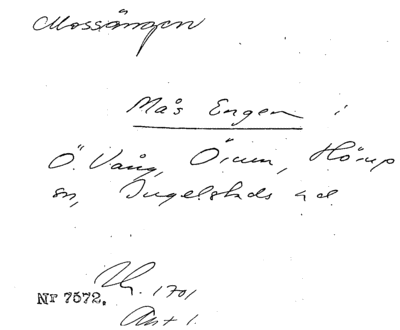 Mossängen
Mås Engen i
Ö. Vång, Örum, Hörup
sn, Ingelstads hd
1701
Nr 7572.
Akt 1.